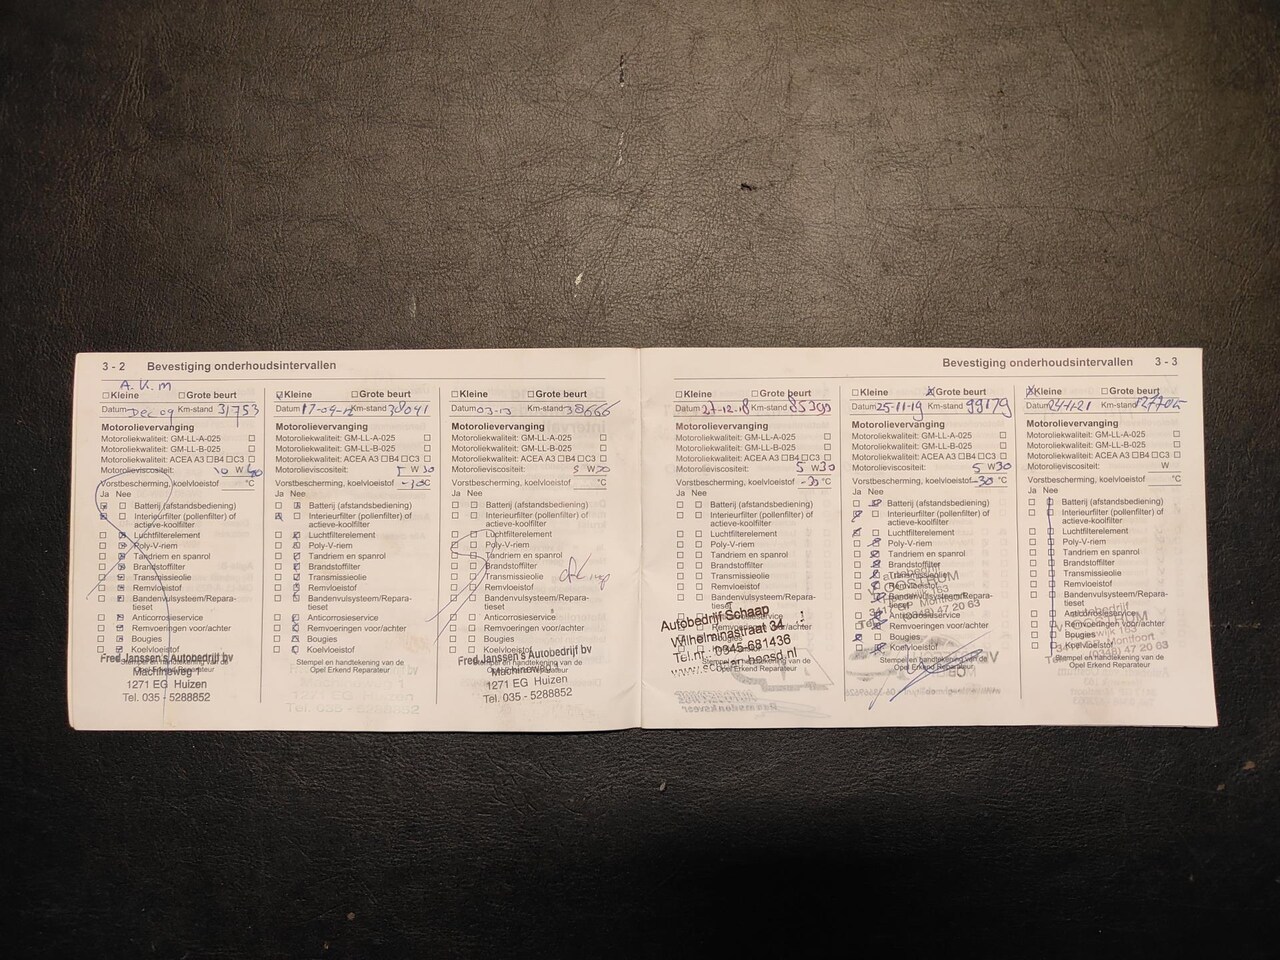 3 - 2 Bevestiging onderhoudsintervallen
A.K.M
Kleine Grote beurt
Datum Dec 09 Km-stand 31753
Motorolievervanging
Motoroliekwaliteit: GM-LL-A-025
Motoroliekwaliteit: GM-LL-B-025
Motoroliekwaliteit: ACEA A3 B4 C3
Motorolieviscositeit: 10 W 40
Vorstbescherming, koelvloeistof °C
Ja Nee
Batterij (afstandsbediening)
Interieurfilter (pollenfilter) of
actieve-koolfilter
Luchtfilterelement
Poly-V-riem
Tandriem en spanrol
Brandstoffilter
Transmissieolie
Remvloeistof
Bandenvulsysteem/Repara-
tieset
Anticorrosieservice
Remvoeringen voor/achter
Bougies
Koelvloeistof
Stempel en handtekening van de
Opel Erkend Reparateur
Fred Janssen's Autobedrijf bv
Machineweg 1
1271 EG Huizen
Tel. 035 - 5288852
Kleine Grote beurt
Datum 17-04-12 Km-stand 38041
Motorolievervanging
Motoroliekwaliteit: GM-LL-A-025
Motoroliekwaliteit: GM-LL-B-025
Motoroliekwaliteit: ACEA A3 B4 C3
Motorolieviscositeit: 5 W 30
Vorstbescherming, koelvloeistof °C
Ja Nee
Batterij (afstandsbediening)
Interieurfilter (pollenfilter) of
actieve-koolfilter
Luchtfilterelement
Poly-V-riem
Tandriem en spanrol
Brandstoffilter
Transmissieolie
Remvloeistof
Bandenvulsysteem/Repara-
tieset
Anticorrosieservice
Remvoeringen voor/achter
Bougies
Koelvloeistof
Stempel en handtekening van de
Opel Erkend Reparateur
Kleine Grote beurt
Datum 03-13 Km-stand 38666
Motorolievervanging
Motoroliekwaliteit: GM-LL-A-025
Motoroliekwaliteit: GM-LL-B-025
Motoroliekwaliteit: ACEA A3 B4 C3
Motorolieviscositeit: 5 W 30
Vorstbescherming, koelvloeistof °C
Ja Nee
Batterij (afstandsbediening)
Interieurfilter (pollenfilter) of
actieve-koolfilter
Luchtfilterelement
Poly-V-riem
Tandriem en spanrol
Brandstoffilter
Transmissieolie
Remvloeistof
Bandenvulsysteem/Repara-
tieset
Anticorrosieservice
Remvoeringen voor/achter
Bougies
Koelvloeistof
Stempel en handtekening van de
Opel Erkend Reparateur
Fred Janssen's Autobedrijf bv
Machineweg 1
1271 EG Huizen
Tel. 035 - 5288852
Bevestiging onderhoudsintervallen 3 - 3
Kleine Grote beurt
Datum 27-12-18 Km-stand 85399
Motorolievervanging
Motoroliekwaliteit: GM-LL-A-025
Motoroliekwaliteit: GM-LL-B-025
Motoroliekwaliteit: ACEA A3 B4 C3
Motorolieviscositeit: 5 W 30
Vorstbescherming, koelvloeistof -30 °C
Ja Nee
Batterij (afstandsbediening)
Interieurfilter (pollenfilter) of
actieve-koolfilter
Luchtfilterelement
Poly-V-riem
Tandriem en spanrol
Brandstoffilter
Transmissieolie
Remvloeistof
Bandenvulsysteem/Repara-
tieset
Anticorrosieservice
Remvoeringen voor/achter
Autobedrijf Schaap
Wilhelminastraat 34
Tel.nr.: 0345-681436
Kleine Grote beurt
Datum 25-11-19 Km-stand 99179
Motorolievervanging
Motoroliekwaliteit: GM-LL-A-025
Motoroliekwaliteit: GM-LL-B-025
Motoroliekwaliteit: ACEA A3 B4 C3
Motorolieviscositeit: 5 W 30
Vorstbescherming, koelvloeistof -30 °C
Ja Nee
Batterij (afstandsbediening)
Interieurfilter (pollenfilter) of
actieve-koolfilter
Luchtfilterelement
Poly-V-riem
Tandriem en spanrol
Brandstoffilter
Transmissieolie
Remvloeistof
Bandenvulsysteem/Repara-
tieset
Anticorrosieservice
Remvoeringen voor/achter
Bougies
Koelvloeistof
Stempel en handtekening van de
Opel Erkend Reparateur
Kleine Grote beurt
Datum 24-11-21 Km-stand
Motorolievervanging
Motoroliekwaliteit: GM-LL-A-025
Motoroliekwaliteit: GM-LL-B-025
Motoroliekwaliteit: ACEA A3 B4 C3
Motorolieviscositeit: W
Vorstbescherming, koelvloeistof °C
Ja Nee
Batterij (afstandsbediening)
Interieurfilter (pollenfilter) of
actieve-koolfilter
Luchtfilterelement
Poly-V-riem
Tandriem en spanrol
Brandstoffilter
Transmissieolie
Remvloeistof
Bandenvulsysteem/Repara-
tieset
Anticorrosieservice
Remvoeringen voor/achter
Bougies
Koelvloeistof
Stempel en handtekening van de
Opel Erkend Reparateur